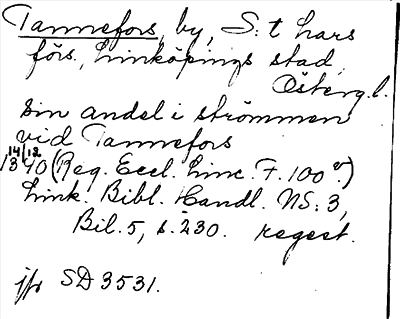 Tannefors, by, S:t Lars
förs., Linköpings stad,
Österg.l.
sin andel i strömmen
vid Tannefors
14/12
1340 (Reg. Eccl. Linc. F. 100 v.)
Link. Bibl. Handl. NS: 3,
Bil. 5, s. 230. regest.
jfr SD 3531.